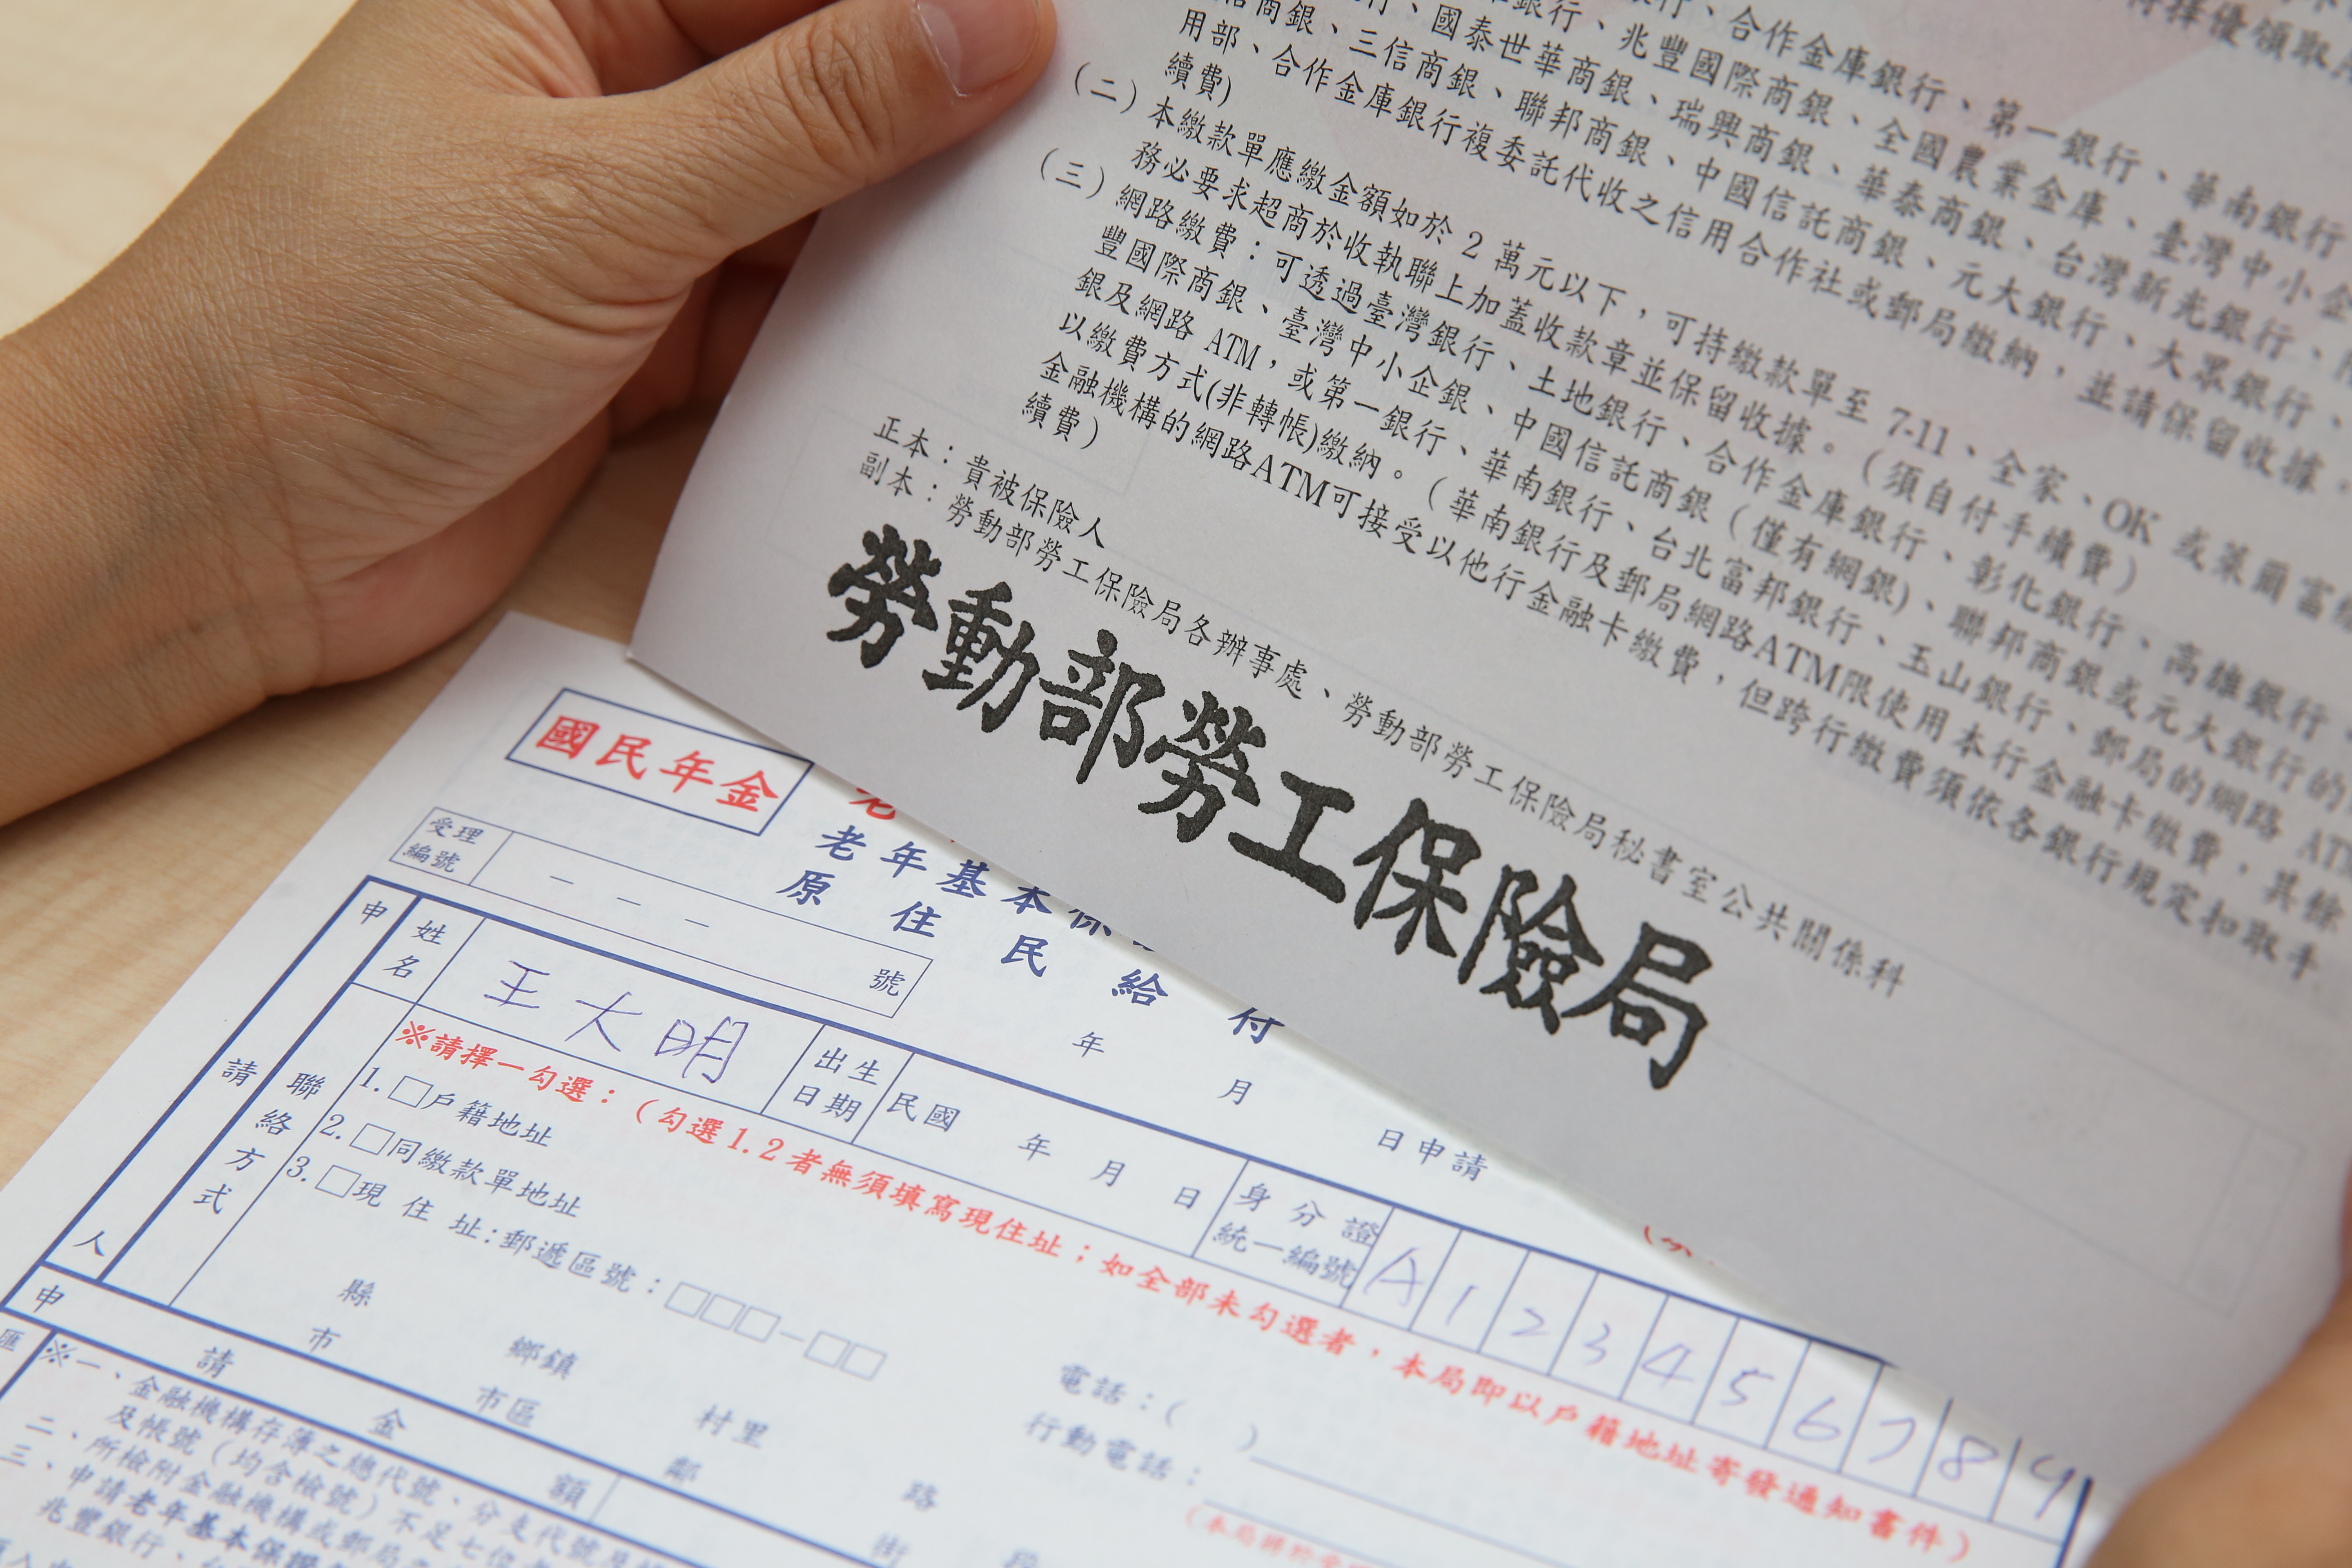 得擇優領取
行、合作金庫銀行、第一銀行、華南銀行
銀行、兆豐國際商銀、全國農業金庫、臺灣中小企
行、國泰世華商銀、瑞興商銀、華泰商銀、台灣新光銀行、
信商銀、三信商銀、聯邦商銀、中國信託商銀、元大銀行、大眾銀行、
用部、合作金庫銀行複委託代收之信用合作社或郵局繳納，並請保留收據。
續費)
(二)本繳款單應繳金額如於 2 萬元以下，可持繳款單至 7-11、全家、OK 或萊爾富
務必要求超商於收執聯上加蓋收款章並保留收據。(須自付手續費)
(三)網路繳費：可透過臺灣銀行、土地銀行、合作金庫銀行、彰化銀行、高雄銀行、
豐國際商銀、臺灣中小企銀、中國信託商銀(僅有網銀)、聯邦商銀或元大銀行的
銀及網路 ATM，或第一銀行、華南銀行、台北富邦銀行、玉山銀行、郵局的網路 ATM
以繳費方式(非轉帳)繳納。(華南銀行及郵局網路ATM限使用本行金融卡繳費，其餘
金融機構的網路ATM可接受以他行金融卡繳費，但跨行繳費須依各銀行規定扣取手
續費)
正本：貴被保險人
副本：勞動部勞工保險局各辦事處、勞動部勞工保險局秘書室公共關係科
勞動部勞工保險局
國民年金
老年基本保
原住民給付
受理編號 － － － 號
年 月 日申請
申請人
姓名 王大明 出生日期 民國 年 月 日 身分證統一編號 A123456789
聯絡方式
※請擇一勾選：(勾選1.2者無須填寫現住址；如全部未勾選者，本局即以戶籍地址寄發通知書件)
1.□戶籍地址
2.□同繳款單地址
3.□現住址：郵遞區號：□□□－□□
電話：( )
縣 鄉鎮 村里 路
市 市區 鄰 街 段
行動電話：
申請金額
匯
※一、金融機構存簿之總代號、分支代號
及帳號(均含檢號)不足七位
二、所檢附金融機構或郵局
三、申請老年基本保證
兆豐銀行、